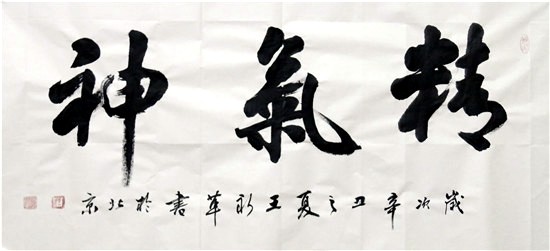 精氣神
歲次辛丑之夏王書於北京